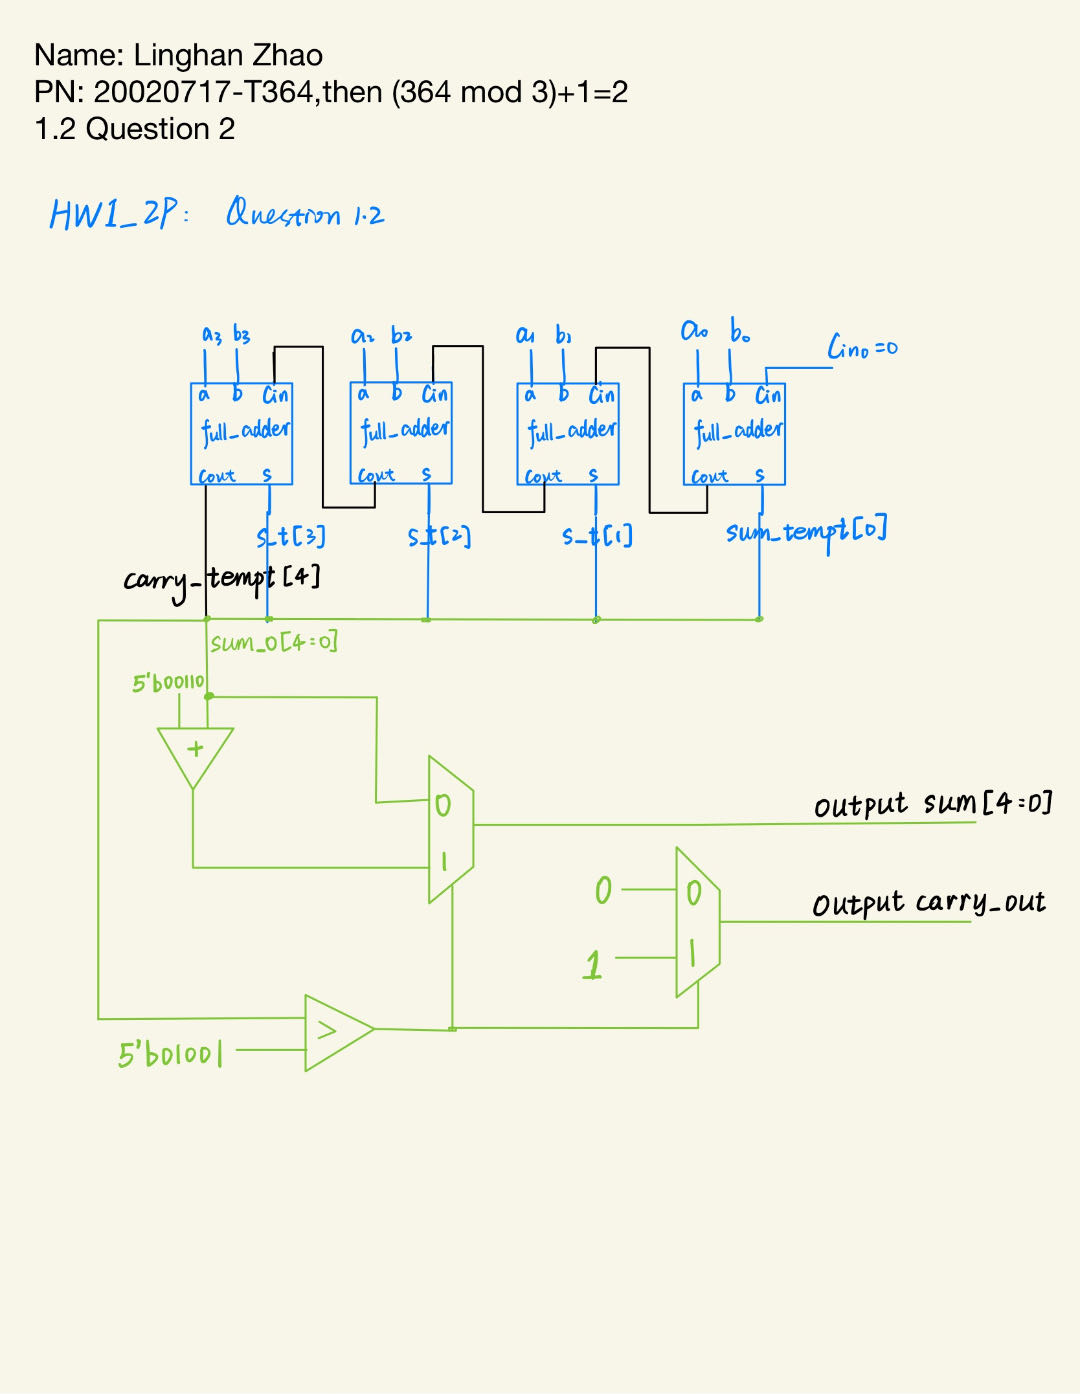 Name: Linghan Zhao
PN: 20020717-T364,then (364 mod 3)+1=2
1.2 Question 2
HW1_2P: Question 1.2
a3 b3 a2 b2 a1 b1 a0 b0 Cin0=0
a b Cin a b Cin a b Cin a b Cin
full_adder full_adder full_adder full_adder
cout s cout s cout s cout s
s_t[3] s_t[2] s_t[1] sum_tempt[0]
carry_tempt[4]
sum_0[4:0]
5'b00110
+
0
output sum[4:0]
1
0 0
output carry_out
1 1
>
5'b01001